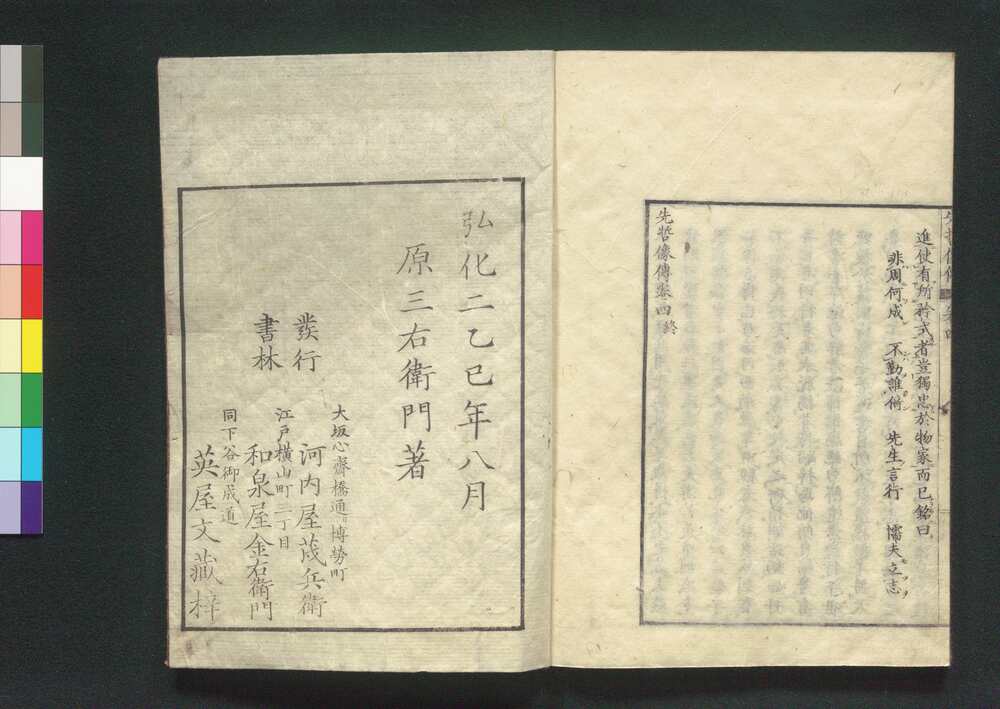 進使有所矜式者豈獨忠於物家而已銘曰
非周何成 不勤誰脩 先生言行 懦夫立志
先哲像傳卷四終
弘化二乙巳年八月
原三右衛門著
發行
書林
大坂心齋橋通博勞町
河内屋茂兵衛
江戸横山町三丁目
和泉屋金右衛門
同下谷御成道
英屋文藏梓